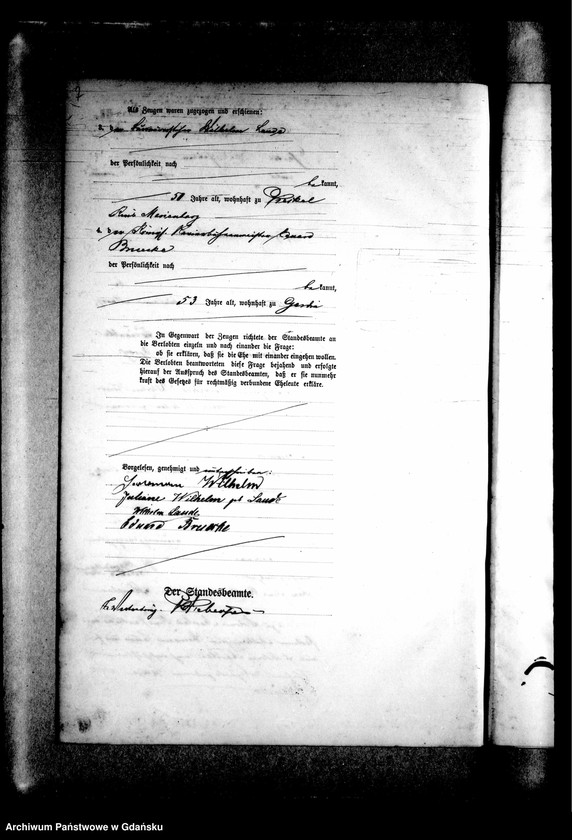 Als Zeugen waren zugezogen und erschienen:
Wilhelm Lande
der Persönlichkeit nach
be kannt,
50 Jahre alt, wohnhaft zu
Kreis Marienburg
Eduard
der Persönlichkeit nach
be kannt,
53 Jahre alt, wohnhaft zu
In Gegenwart der Zeugen richtete der Standesbeamte an
die Verlobten einzeln und nach einander die Frage:
ob sie erklären, daß sie die Ehe mit einander eingehen wollen.
Die Verlobten beantworteten diese Frage bejahend und erfolgte
hierauf der Ausspruch des Standesbeamten, daß er sie nunmehr
kraft des Gesetzes für rechtmäßig verbundene Eheleute erkläre.
Vorgelesen, genehmigt und unterschrieben:
Herrmann Wilhelm
Juliane Wilhelm geb Lande
Wilhelm Lande
Eduard
Der Standesbeamte.
In Vertretung
Archiwum Państwowe w Gdańsku